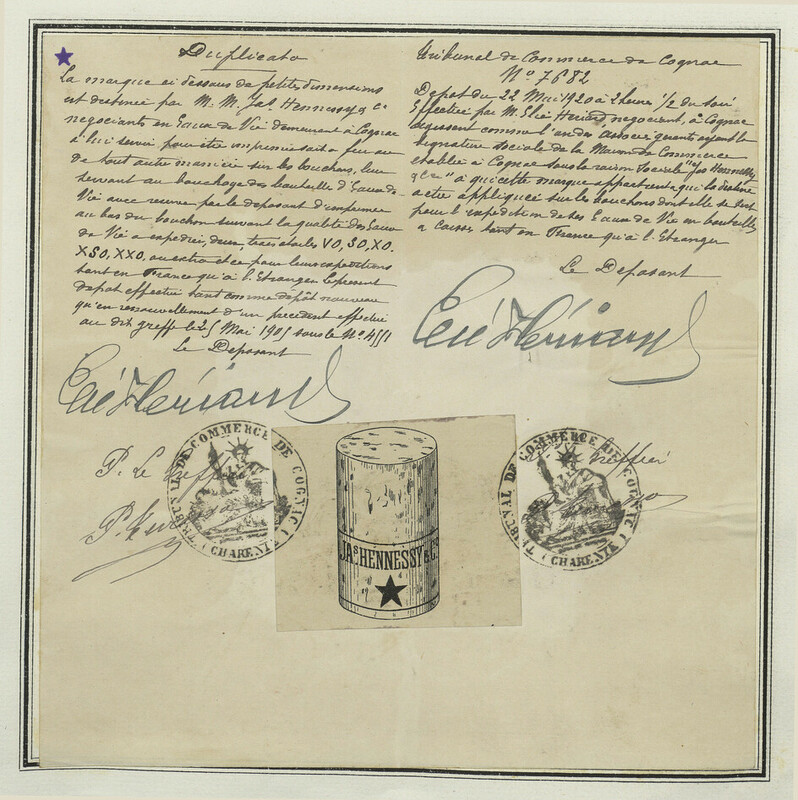 Duplicata
La marque ci dessous de petites dimensions
est destinée par M. M. Jas. Hennessy & Co
négociants en Eaux de Vie demeurant à Cognac
à lui servir pour être imprimée soit à feu ou
de tout autre manière sur les bouchons, leur
servant au bouchage des bouteilles d'Eaux de
Vie avec reserve par le deposant d'imprimer
au bas du bouchon suivant la qualité des Eaux
de Vie a expédier, deux, trois étoiles VO, SO, XO.
XSO, XXO, ou extra etc pour leurs expéditions
tant en France qu'à l'Etranger le present
depot effectué tant comme dépôt nouveau
qu'en renouvellement d'un precedent effectué
au dit greffe le 25 Mai 1905 sous le No 4551
Le Deposant
Tribunal de Commerce de Cognac
No 7682
Depot du 22 Mai 1920 à 2 heures 1/2 du soir
Effectué par M. négociant, à Cognac
agissant comme l'un des associés ayant la
signature sociale de la Maison de Commerce
etablie à Cognac sous la raison sociale "Jas Hennessy
& Co" à qui cette marque appartient & qui la destine
a être appliquée sur les bouchons dont elle se sert
pour l'expedition de ses Eaux de Vie en bouteilles
& caisses tant en France qu'à l'Etranger
Le Deposant
P. Le Greffier
TRIBUNAL DE COMMERCE DE COGNAC
(CHARENTE)
JAS HENNESSY & Co
TRIBUNAL DE COMMERCE DE COGNAC
(CHARENTE)